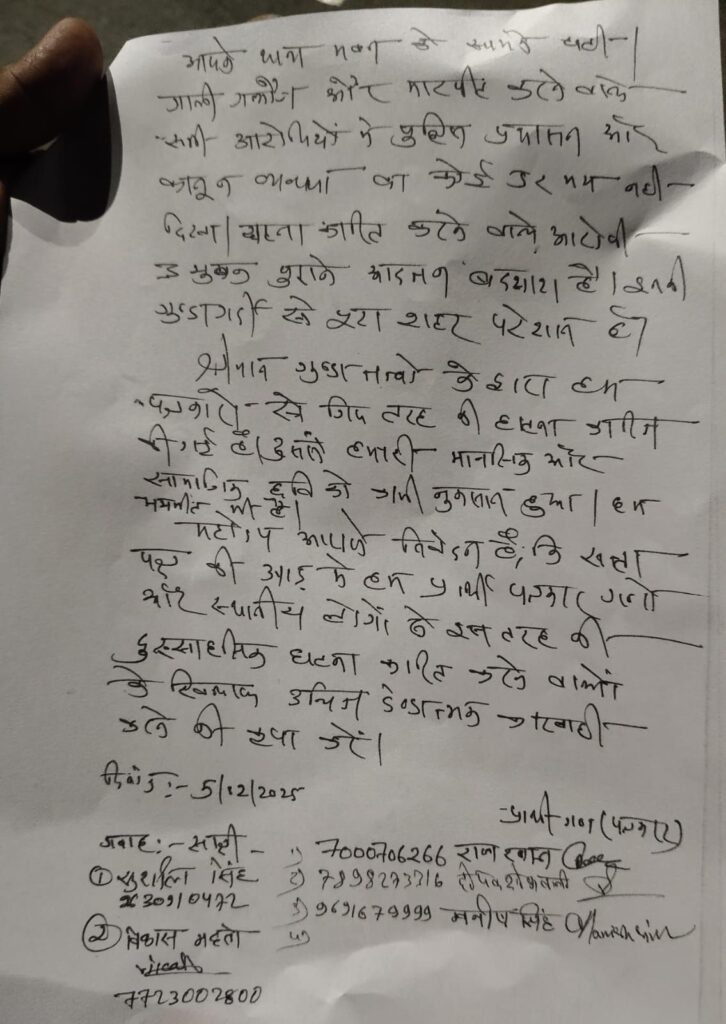 आपके थाना भवन के सामने घटी।
गाली गलौज और मारपीट करने वाले
सभी आरोपियों में पुलिस प्रशासन और
कानून व्यवस्था का कोई डर भय नहीं
दिखा। घटना कारित करने वाले आरोपी
पुराने आदतन बदमाश है। इनकी
गुण्डागर्दी से पूरा शहर परेशान है।
श्रीमान गुण्डा तत्वों के द्वारा हम
पत्रकारों से जिस तरह की घटना कारित
की गई है। इससे हमारी मानसिक और
सामाजिक छवि को भारी नुकसान हुआ। हम
भयभीत भी है।
महोदय आपसे निवेदन है, कि सत्ता
पक्ष की आड़ मे हम प्रार्थी पत्रकार गणों
और स्थानीय लोगों से इस तरह की
दुस्साहसिक घटना कारित करने वालों
के खिलाफ उचित दण्डात्मक कारवाही
करने की कृपा करें।
दिनांक:- 5/12/2025
प्रार्थी गण (पत्रकार)
गवाह:- साक्षी -
1) 7000706266 राज
① सुशील सिंह
2) 7898273316 दीपक
3) 9691679999 मनीष सिंह
4)
② विकास महतो
7723002800